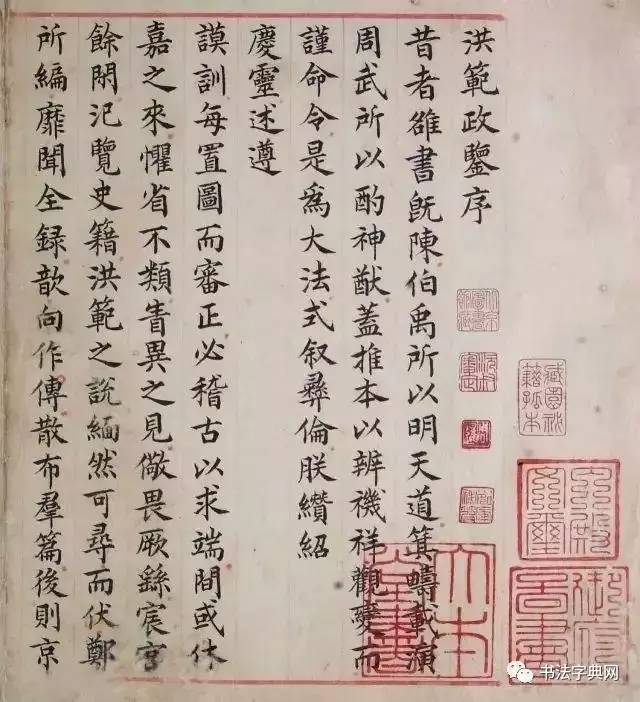 洪範政鑒序
昔者雒書旣陳伯禹所以明天道箕疇載演
周武所以酌神猷蓋推本以辨禨祥觀變而
謹命令是爲大法式叙彝倫朕纘紹
慶靈述遵
謨訓每置圖而審正必稽古以求端間或休
嘉之來懼省不類眚異之見儆畏厥繇宸宫
餘閑氾覽史籍洪範之說緬然可尋而伏鄭
所編靡聞全録歆向作傳散布羣篇後則京
藏園秘
籍孤本
書法字典网